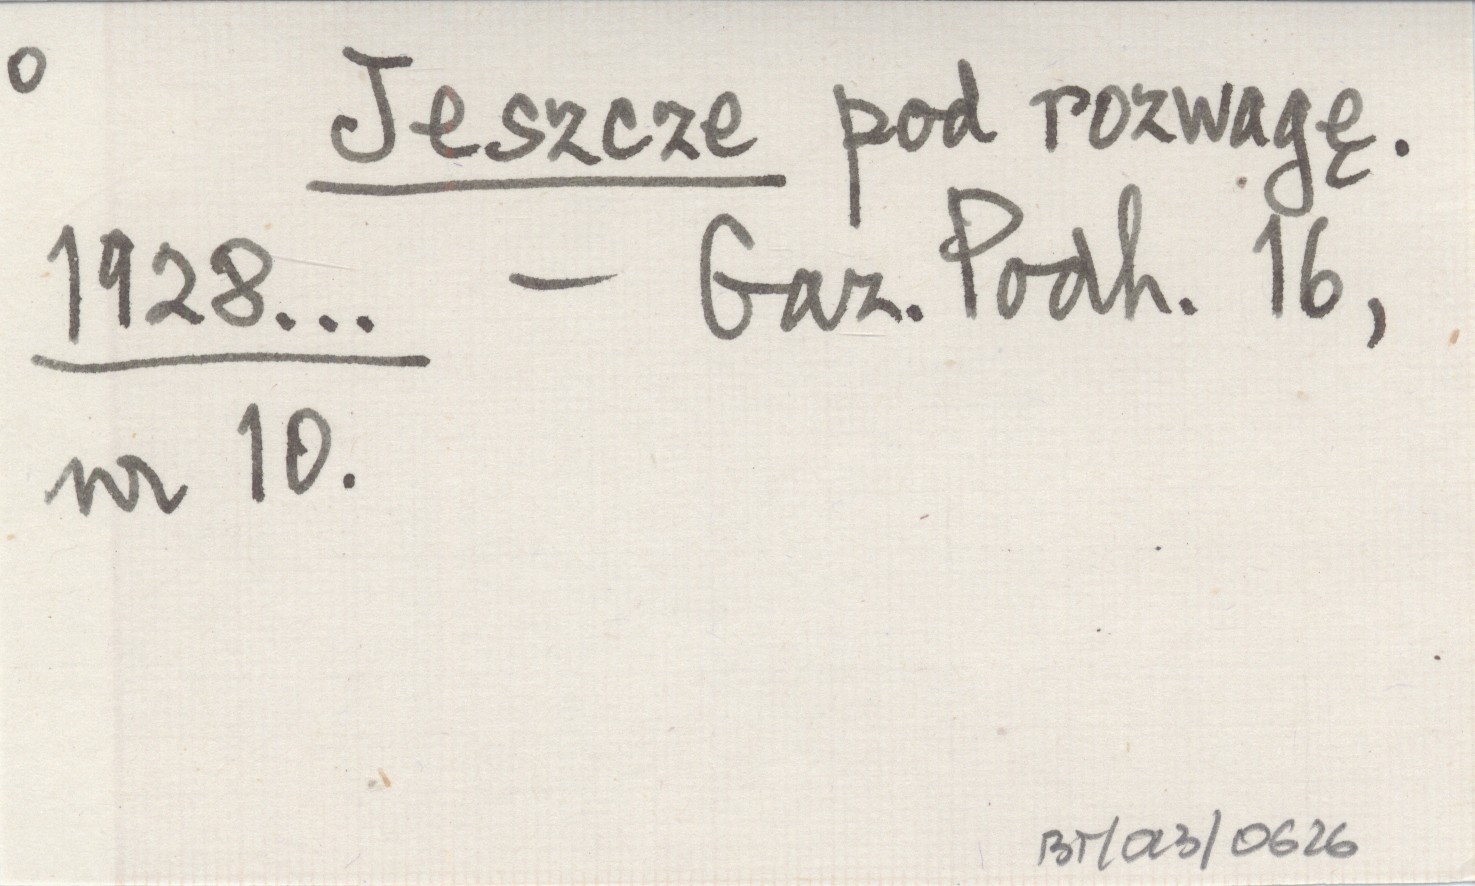 o Jeszcze pod rozwagę.
1928... – Gaz. Podh. 16,
nr 10.
BT/013/0626